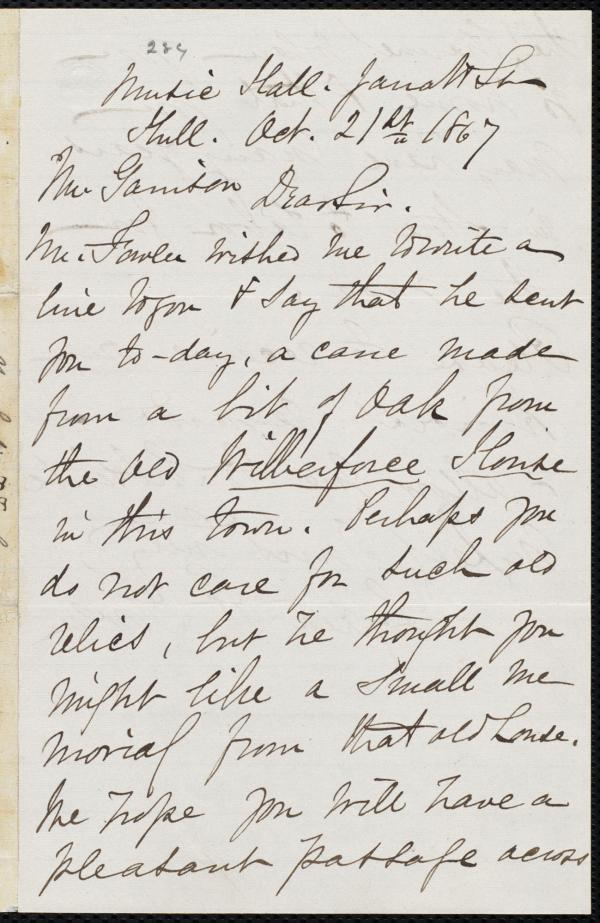 234
Music Hall. Jarratt St
Hull. Oct. 21st 1867
Mr Garrison Dear Sir.
Mr. Fowler wished me to write a
line to you & say that he sent
you to-day, a cane made
from a bit of Oak from
the old Wilberforce House
in this town. Perhaps you
do not care for such old
relics, but he thought you
might like a small me
morial from that old house.
We hope you will have a
pleasant passage across